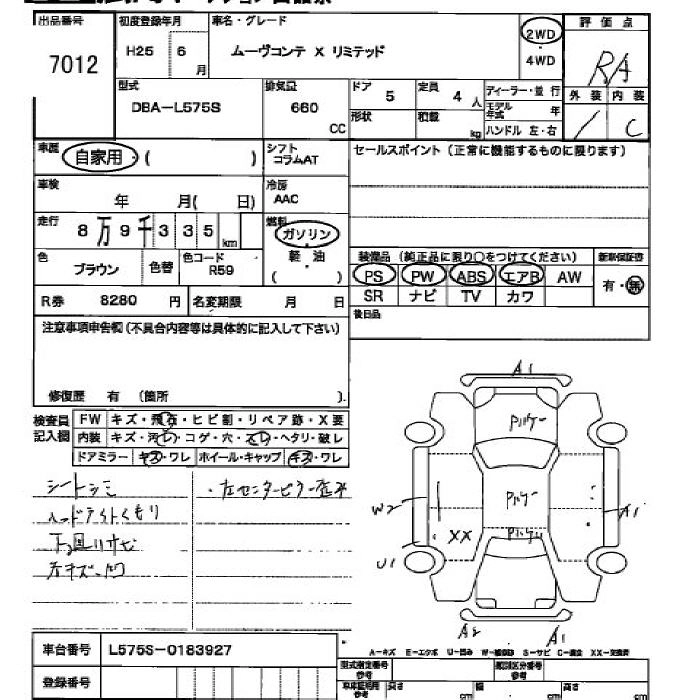 出品番号
7012
初度登録年月
H25 6 月
車名・グレード
ムーヴコンテ X リミテッド
2WD
4WD
評価点
R/A
外装 内装
/ C
型式
DBA-L575S
排気量
660
CC
ドア
5
定員
4 人
形状
積載
kg
ディーラー・並行
モデル年式 年
ハンドル 左・右
車歴
自家用・( )
シフト
コラムAT
セールスポイント(正常に機能するものに限ります)
車検
年 月( 日)
冷房
AAC
走行
8万9千335 km
燃料
ガソリン
軽・油
( )
色
ブラウン
色替
色コード
R59
装備品(純正品に限り○をつけてください)
PS PW ABS エアB AW
SR ナビ TV カワ
新車保証書
有・無
R券 8280 円
名変期限 月 日
後日品
注意事項申告欄(不具合内容等は具体的に記入して下さい)
修復歴 有 (箇所 ).
検査員
記入欄
FW キズ・飛石・ヒビ割・リペア跡・X要
内装 キズ・汚レ・コゲ・穴・スレ・ヘタリ・破レ
ドアミラー キズ・ワレ ホイール・キャップ キズ・ワレ
シートシミ
ヘッドライトくもり
下回りサビ
・左センターピラー歪み
A1
Pハゲー
Pハゲー
Pハゲー
W2
XX
U1
A1
A2
A1
A-キズ E-エクボ U-凹み W-補修跡 S-サビ C-腐食 XX-交換済
車台番号 L575S-0183927
登録番号
型式指定番号
参考
類別区分番号
参考
車体証明用
参考
長さ cm
幅 cm
高さ cm